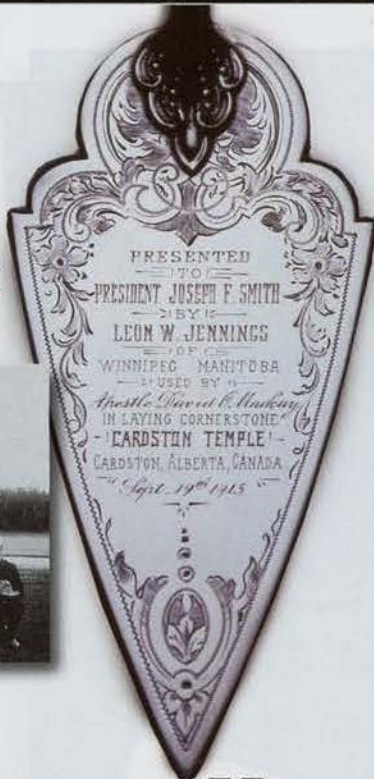 PRESENTED
TO
PRESIDENT JOSEPH F. SMITH
BY
LEON W. JENNINGS
OF
WINNIPEG MANITOBA
USED BY
Apostle David O. McKay
IN LAYING CORNERSTONE
CARDSTON TEMPLE
CARDSTON, ALBERTA, CANADA
Sept. 19th 1915